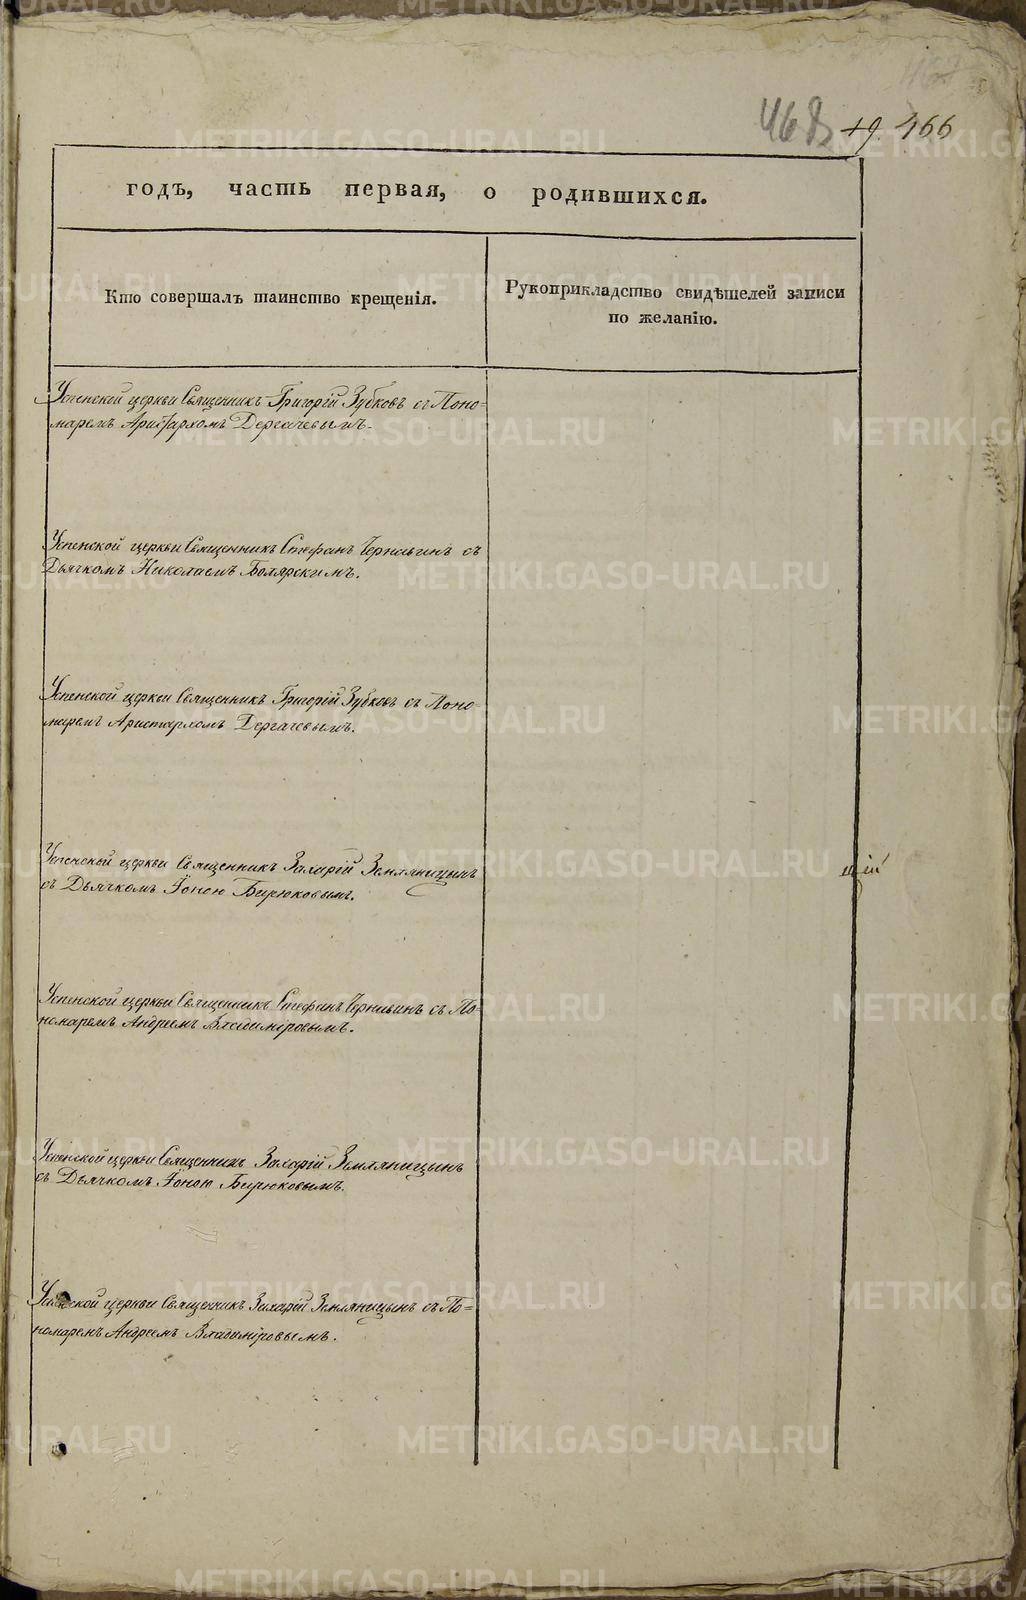 468
19. 466
годъ, часть первая, о родившихся.
Кто совершалъ таинство крещенія.
Рукоприкладство свидѣтелей записи
по желанію.
Успенской церкви Священникъ Григорій Зубковъ съ Поно-
маремъ Аристархомъ Дергачевымъ.
Успенской церкви Священникъ Стефанъ Чернавинъ съ
Дьячкомъ Николаемъ Боляре̄кимъ.
Успенской церкви Священникъ Григорій Зубковъ съ Поно-
маремъ Аристархомъ Дергачевымъ.
Успенской церкви Священникъ Захарій Земляницынъ
съ Дьячкомъ Іоною Бирюковымъ.
Успенской церкви Священникъ Стефанъ съ По-
номаремъ Андреемъ Владиміровымъ.
Успенской церкви Священникъ Захарій Земляницынъ
съ Дьячкомъ Іоною Бирюковымъ.
Успенской церкви Священникъ Захарій Земляницынъ съ По=
номаремъ Андреемъ Владиміровымъ.
METRIKI.GASO-URAL.RU